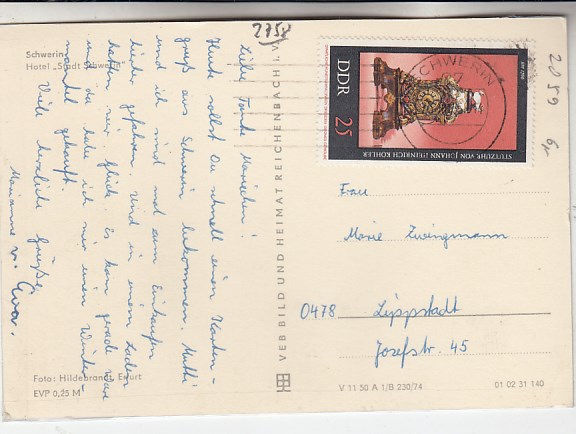 2758
Schwerin
Hotel „Stadt Schwerin"
Liebe Tante Mariechen!
Heute sollst Du schnell einen Karten-
gruß aus Schwerin bekommen. Mutti
und ich sind mal zum Einkaufen
hierher gefahren. Und in einem Laden
hatten wir Glück. Es kam gerade Ware
und da habe ich mir einen Winter-
mantel gekauft.
Viele herzliche Grüße
Marianne u. Eva.
Foto: Hildebrandt, Erfurt
EVP 0,25 M
VEB BILD UND HEIMAT REICHENBACH i. V.
DDR
25
STUTZUHR VON JOHANN HEINRICH KÖHLER
SCHWERIN
2059
Frau
Marie Zwingmann
0478 Lippstadt
Josefstr. 45
V 11 50 A 1/B 230/74
01 02 31 140